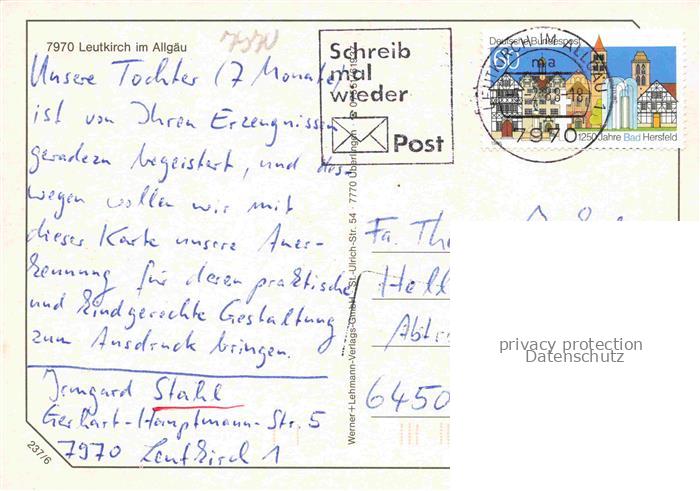 7970 Leutkirch im Allgäu
7970
Unsere Tochter (7 Monate)
ist von Ihren Erzeugnissen
geradezu begeistert, und des-
wegen wollen wir mit
dieser Karte unsere Aner-
kennung für deren praktische
und kindgerechte Gestaltung
zum Ausdruck bringen.
Irmgard Stahl
Gerhart-Hauptmann-Str. 5
7970 Leutkirch 1
237/6
Werner+Lehmann-Verlags-GmbH, St.-Ulrich-Str. 54 · 7770 Überlingen
Schreib
mal
wieder
Post
LEUTKIRCH IM ALLGÄU 1
ma
7970
Deutsche Bundespost
60
1250 Jahre Bad Hersfeld
Fa. Th
Hell
Abt
6450
privacy protection
Datenschutz